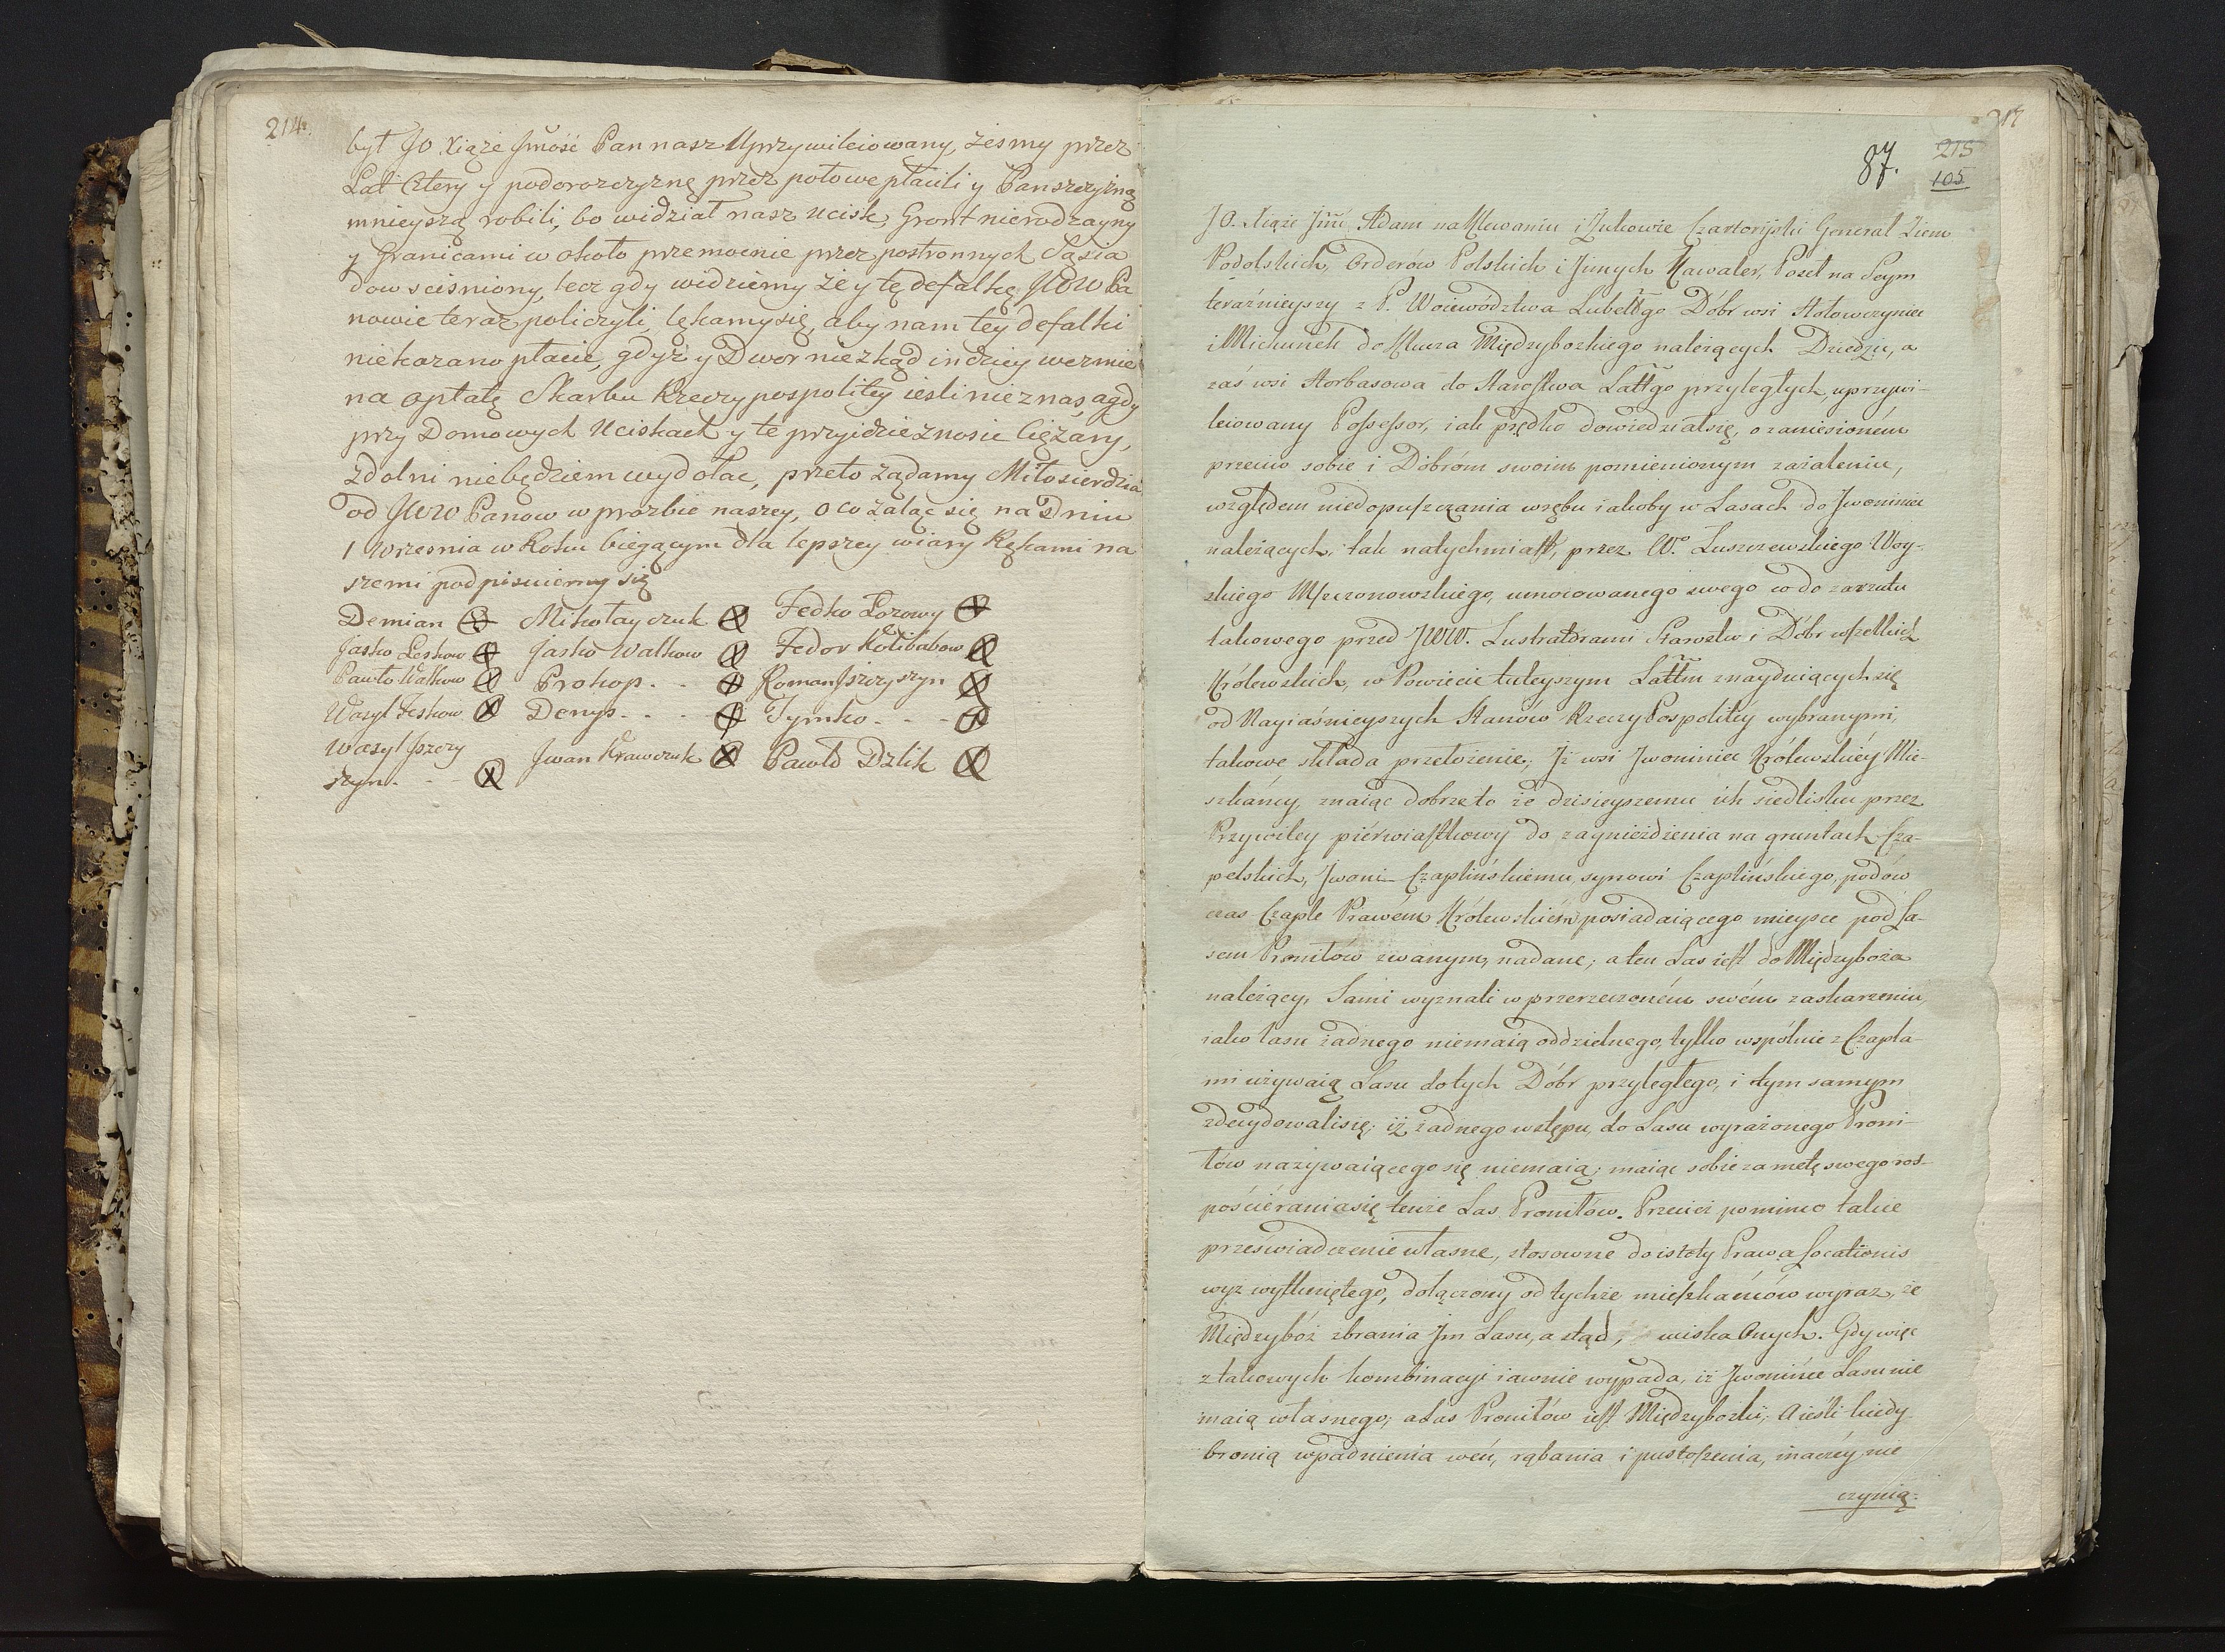 214.
był JO Xiąże Jmość Pan nasz Uprzywileiowany, żesmy przez
Lat Cztery y podorozczyznę przez połowe płacili y Panszczyzną
mnieyszą robili, bo widział nasz ucisk, Gront nierodzayny
y Granicami w około przemocnie przez postronnych Sąsia
dow scisniony, lecz gdy widziemy że y tę defalkę JWW Pa
nowie teraz policzyli, lękamy się, aby nam tey defalki
niekazano płacic, gdyż y Dwor niezkąd indziey wezmie
na opłatę Skarbu Rzeczypospolitey iesli nie z nas, a gdy
przy Domowych Uciskach y te przyidzie znosic Ciężary,
zdolni niebędziem wydołac, przeto żądamy Miłosierdzia
od JWW Panow w prozbie naszey, o co żaląc się na Dniu
1 Wrzesnia w Roku biegącym dla lepszey wiary Rękami na
szemi podpisuiemy się
Demian Mikołayczuk Fedko Łozowy
Jasko Leskow Jasko Walkow Fedor Kolibabow
Pawło Walkow Prokop. Roman Jszczyszyn
Wasyl Leskow Denys Tymko
Wasyl Jszczy
szyn. Jwan Krawczuk Pawło Dzlik
87.
215
105
JO. Xiąże Jmć Adam na Klewaniu i Żukowie Czartoryski Generał Ziem
Podolskich, Orderów Polskich i Jnnych Kawaler, Poseł na Seym
teraźnieyszy z P. Woiewództwa Lubelgo Dóbr wsi Hołowczyniec
i Michunek do Klucza Międzybozkiego należących Dziedzic, a
zaś wsi Horbasowa do Starostwa Lattgo przyległych, uprzywi-
leiowany Possessor, iak prędko dowiedział się, o zaniesioném
przeciw sobie i Dobróm swoim pomienionym zażaleniu,
względem niedopuszczania wrębu iakoby w Lasach do Jwoniniec
należących, tak natychmiast, przez W.o Luszczewskiego Woy-
skiego Mszczonowskiego, umocowanego swego co do zarzutu
takowego przed JWW. Lustratorami Starostw i Dóbr wszelkich
Królewskich, w Powiecie tuteyszym Lattm znayduiących się
od Nayiaśnieyszych Stanów Rzeczy Pospolitéy wybranymi,
takowe składa przełożenie; Jż wsi Jwoniniec Królewskiéy Mie-
szkańcy, znaiąc dobrze to że dzisieyszemu ich siedlisku przez
Przywiley piérwiastkowy do zagnieżdżenia na gruntach Cza-
pelskich, Jwoni Czaplińskiemu, synowi Czaplińskiego, podów
czas Czaple Prawém Królewskiém posiadaiącego mieysce pod La-
sem Pronitów zwanym, nadane; a ten Las iest do Międzyboża
należący, Sami wyznali w przerzeczoném swém zaskarzeniu,
iako lasu żadnego niemaią oddzielnego, tylko wspólnie z Czapla-
mi używaią Lasu do tych Dóbr przyległego, i tym samym
zdecydowali się; iż żadnego wstępu, do Lasu wyrażonego Proni-
tów nazywaiącego się niemaią; maiąc sobie za metę swego ros-
pościérania się tenże Las Pronitów. Przecież pomimo takie
przeświadczenie własne, stosowne do istoty Prawa Locationis
wyż wytkniętego, dołączony od tychże mieszkańców wyraz, że
Międzybóż zbrania Jm Lasu, a stąd, uciska Onych. Gdy więc
z takowych kombinacyi iawnie wypada, iż Jwonińce Lasu nie
maią własnego; a Las Pronitów iest Międzybozki; A ieśli kiedy
bronią wpadnienia weń, rąbania i pustoszenia, inaczéy nie
czynią.